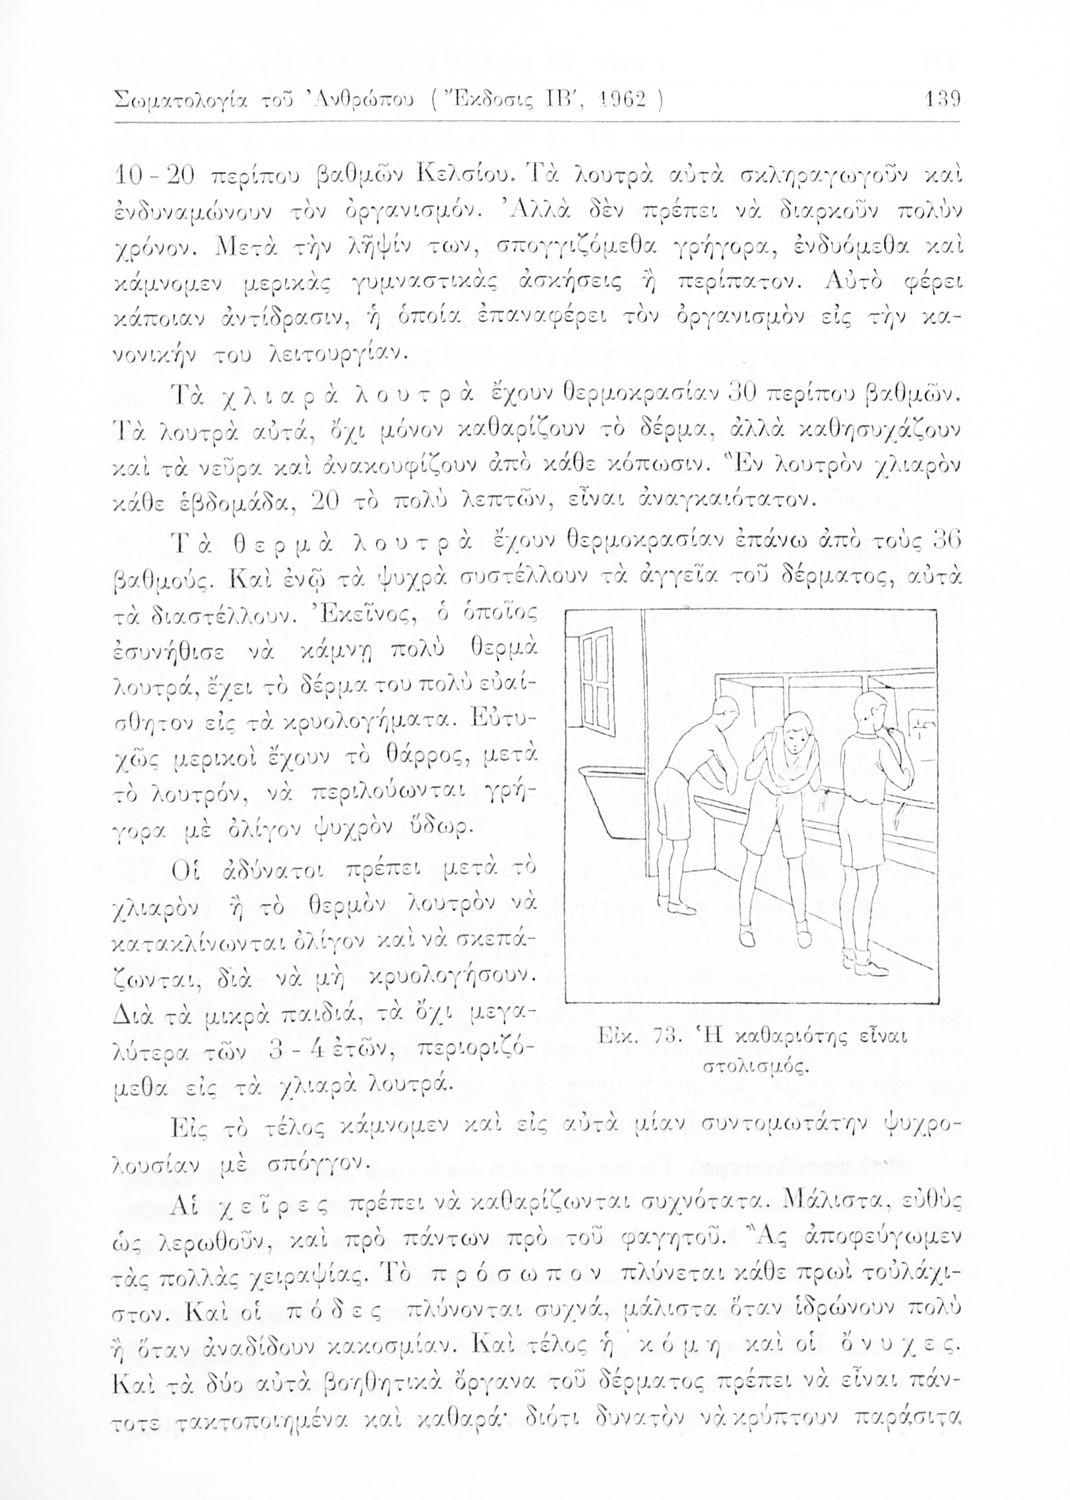 Σωματολογία τοῦ Ἀνθρώπου ( Ἔκδοσις ΙΒ′, 1962 ) 139
10 - 20 περίπου βαθμῶν Κελσίου. Τὰ λουτρὰ αὐτὰ σκληραγωγοῦν καὶ
ἐνδυναμώνουν τὸν ὀργανισμόν. Ἀλλὰ δὲν πρέπει νὰ διαρκοῦν πολὺν
χρόνον. Μετὰ τὴν λῆψίν των, σπογγιζόμεθα γρήγορα, ἐνδυόμεθα καὶ
κάμνομεν μερικὰς γυμναστικὰς ἀσκήσεις ἢ περίπατον. Αὐτὸ φέρει
κάποιαν ἀντίδρασιν, ἡ ὁποία ἐπαναφέρει τὸν ὀργανισμὸν εἰς τὴν κα-
νονικήν του λειτουργίαν.
Τὰ χ λ ι α ρ ὰ λ ο υ τ ρ ὰ ἔχουν θερμοκρασίαν 30 περίπου βαθμῶν.
Τὰ λουτρὰ αὐτά, ὄχι μόνον καθαρίζουν τὸ δέρμα, ἀλλὰ καθησυχάζουν
καὶ τὰ νεῦρα καὶ ἀνακουφίζουν ἀπὸ κάθε κόπωσιν. Ἓν λουτρὸν χλιαρὸν
κάθε ἑβδομάδα, 20 τὸ πολὺ λεπτῶν, εἶναι ἀναγκαιότατον.
Τ ὰ θ ε ρ μ ὰ λ ο υ τ ρ ὰ ἔχουν θερμοκρασίαν ἐπάνω ἀπὸ τοὺς 36
βαθμούς. Καὶ ἐνῷ τὰ ψυχρὰ συστέλλουν τὰ ἀγγεῖα τοῦ δέρματος, αὐτὰ
τὰ διαστέλλουν. Ἐκεῖνος, ὁ ὁποῖος
ἐσυνήθισε νὰ κάμνῃ πολὺ θερμὰ
λουτρά, ἔχει τὸ δέρμα του πολὺ εὐαί-
σθητον εἰς τὰ κρυολογήματα. Εὐτυ-
χῶς μερικοὶ ἔχουν τὸ θάρρος, μετὰ
τὸ λουτρόν, νὰ περιλούωνται γρή-
γορα μὲ ὀλίγον ψυχρὸν ὕδωρ.
Οἱ ἀδύνατοι πρέπει μετὰ τὸ
χλιαρὸν ἢ τὸ θερμὸν λουτρὸν νὰ
κατακλίνωνται ὀλίγον καὶ νὰ σκεπά-
ζωνται, διὰ νὰ μὴ κρυολογήσουν.
Διὰ τὰ μικρὰ παιδιά, τὰ ὄχι μεγα-
λύτερα τῶν 3 - 4 ἐτῶν, περιοριζό-
μεθα εἰς τὰ χλιαρὰ λουτρά.
Εἰκ. 73. Ἡ καθαριότης εἶναι
στολισμός.
Εἰς τὸ τέλος κάμνομεν καὶ εἰς αὐτὰ μίαν συντομωτάτην ψυχρο-
λουσίαν μὲ σπόγγον.
Αἱ χ ε ῖ ρ ε ς πρέπει νὰ καθαρίζωνται συχνότατα. Μάλιστα, εὐθὺς
ὡς λερωθοῦν, καὶ πρὸ πάντων πρὸ τοῦ φαγητοῦ. Ἂς ἀποφεύγωμεν
τὰς πολλὰς χειραψίας. Τὸ π ρ ό σ ω π ο ν πλύνεται κάθε πρωὶ τοὐλάχι-
στον. Καὶ οἱ π ό δ ε ς πλύνονται συχνά, μάλιστα ὅταν ἱδρώνουν πολὺ
ἢ ὅταν ἀναδίδουν κακοσμίαν. Καὶ τέλος ἡ κ ό μ η καὶ οἱ ὄ ν υ χ ε ς.
Καὶ τὰ δύο αὐτὰ βοηθητικὰ ὄργανα τοῦ δέρματος πρέπει νὰ εἶναι πάν-
τοτε τακτοποιημένα καὶ καθαρά· διότι δυνατὸν νὰ κρύπτουν παράσιτα